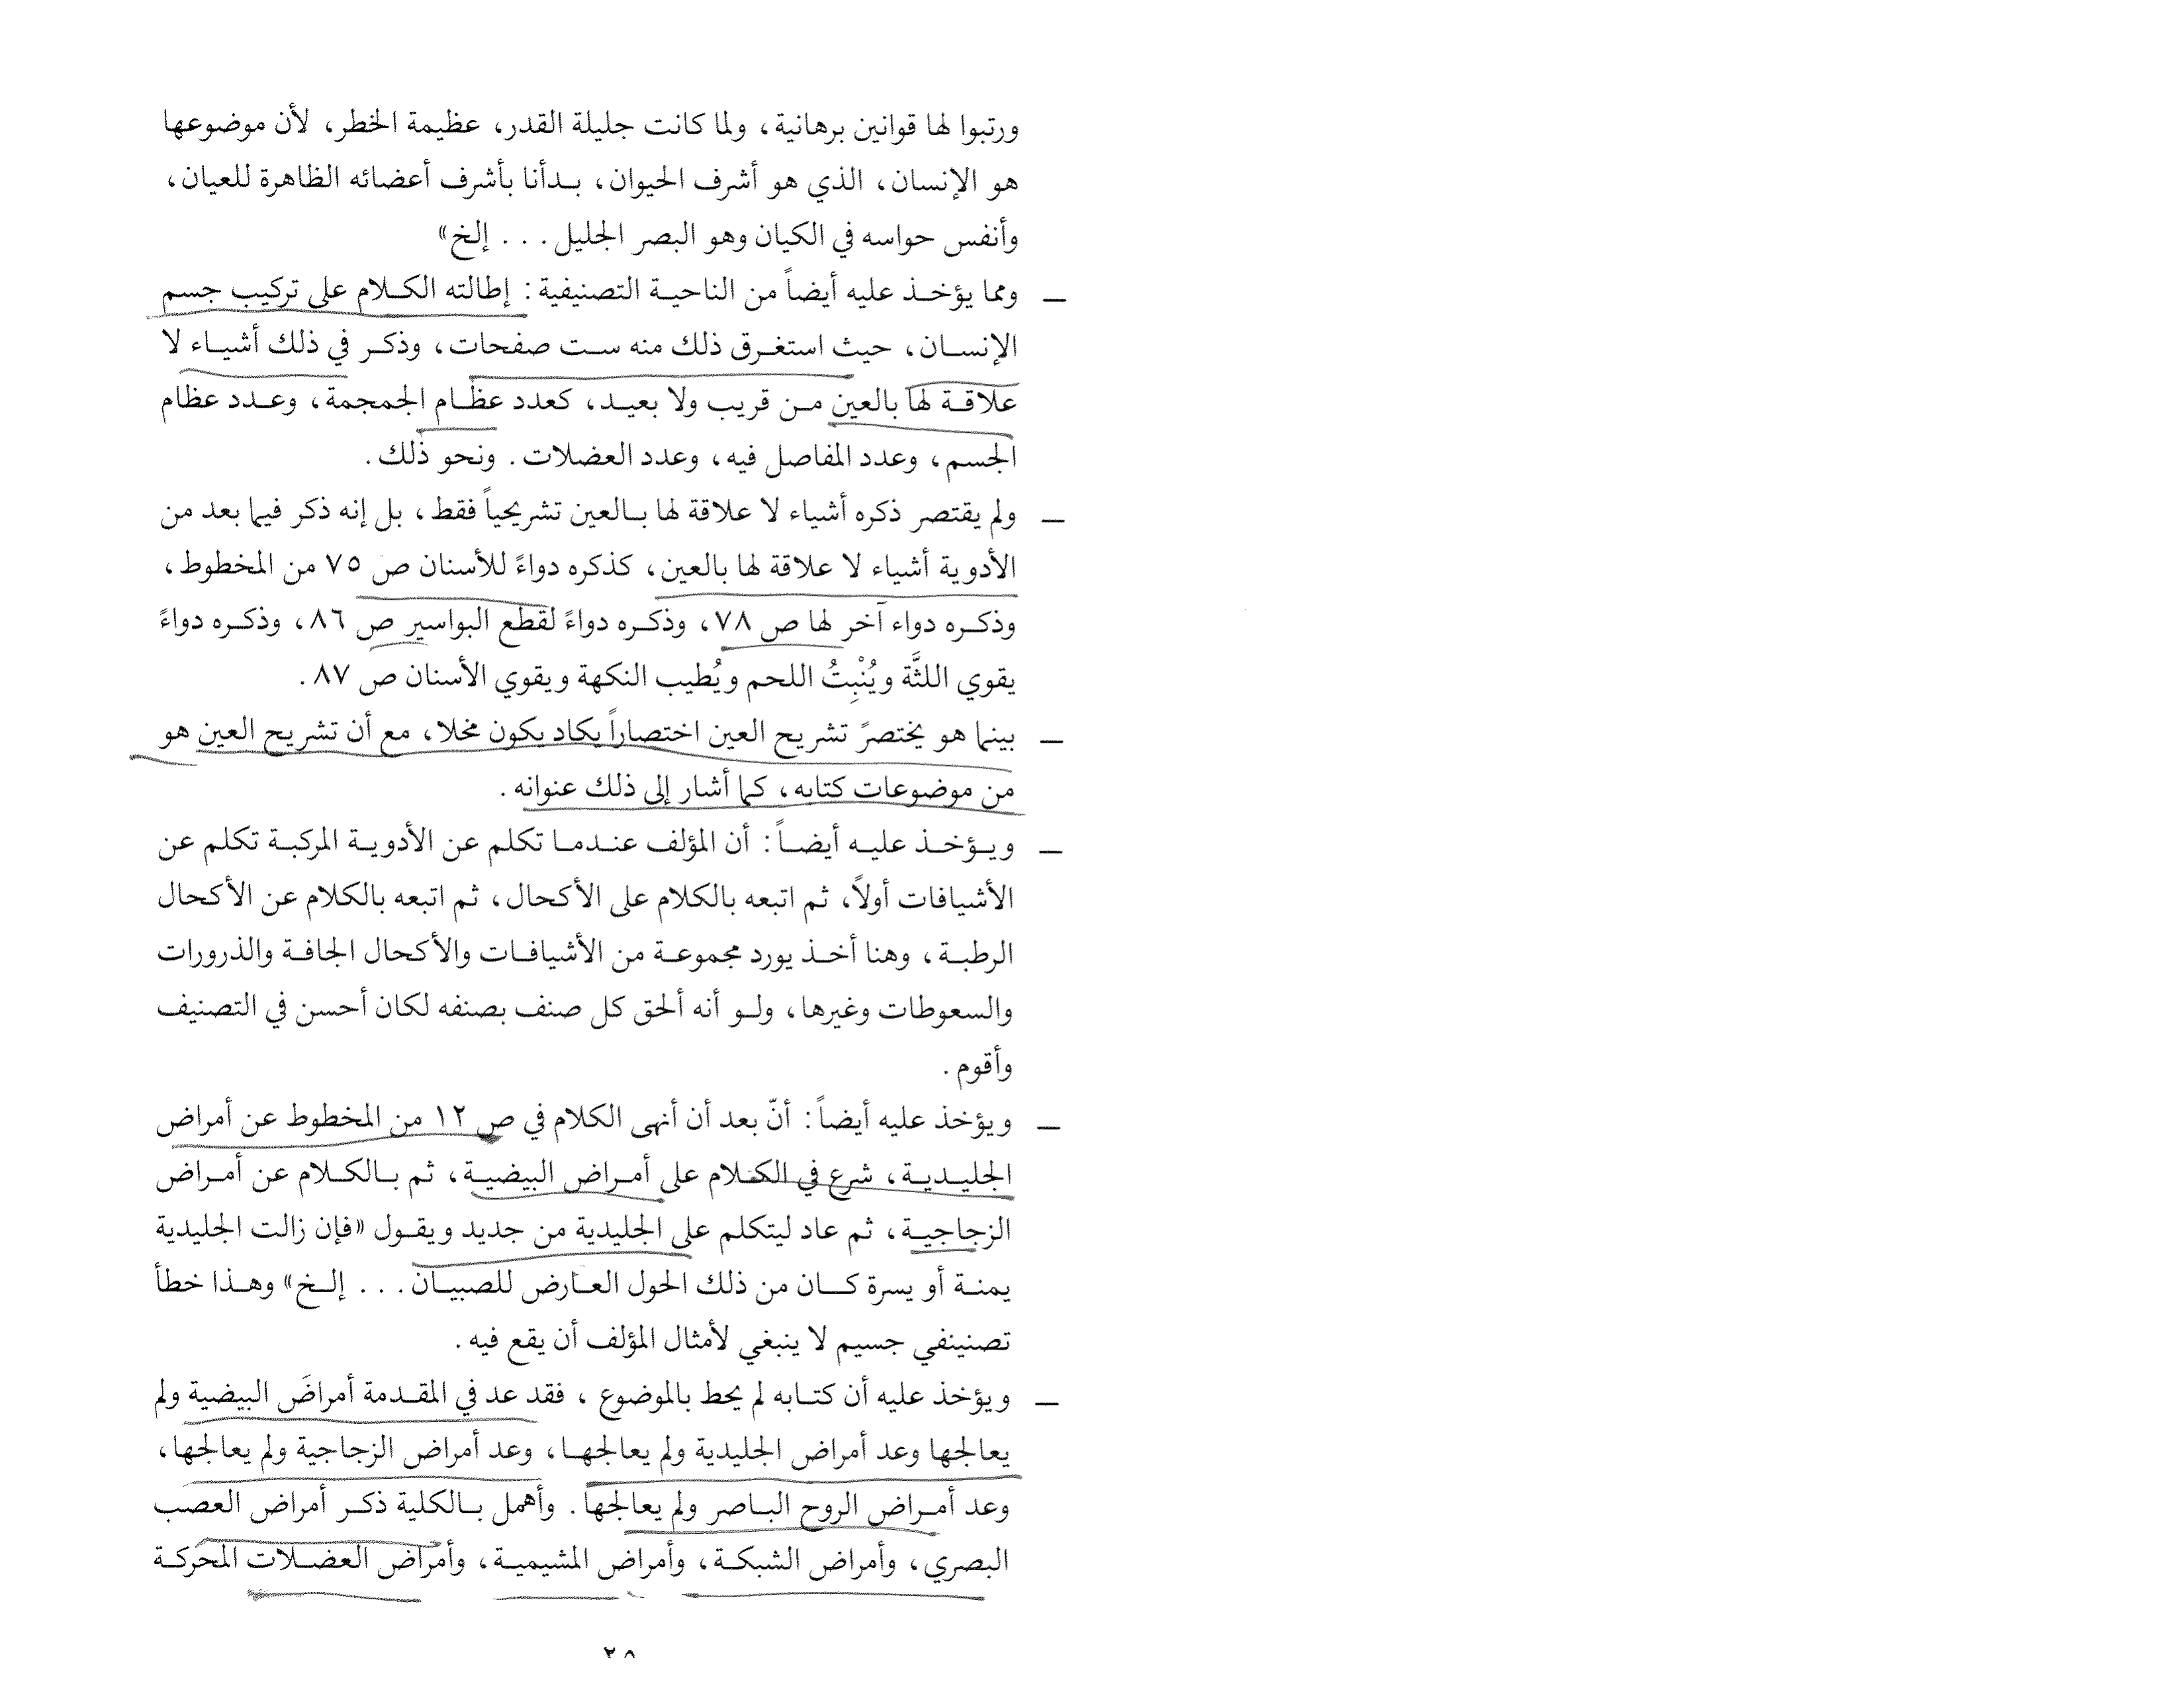 ورتبوا لها قوانين برهانية، ولما كانت جليلة القدر، عظيمة الخطر، لأن موضوعها
هو الإنسان، الذي هو أشرف الحيوان، بدأنا بأشرف أعضائه الظاهرة للعيان،
وأنفس حواسه في الكيان وهو البصر الجليل . . . إلخ»
ـ ومما يؤخذ عليه أيضاً من الناحية التصنيفية: إطالته الكلام على تركيب جسم
الإنسان، حيث استغرق ذلك منه ست صفحات، وذكر في ذلك أشياء لا
علاقة لها بالعين من قريب ولا بعيد، كعدد عظام الجمجمة، وعدد عظام
الجسم، وعدد المفاصل فيه، وعدد العضلات. ونحو ذلك.
ـ ولم يقتصر ذكره أشياء لا علاقة لها بالعين تشريحياً فقط، بل إنه ذكر فيما بعد من
الأدوية أشياء لا علاقة لها بالعين، كذكره دواءً للأسنان ص ٧٥ من المخطوط،
وذكره دواء آخر لها ص ٧٨، وذكره دواءً لقطع البواسير ص ٨٦، وذكره دواءً
يقوي اللثَّة ويُنْبِتُ اللحم ويُطيب النكهة ويقوي الأسنان ص ٨٧.
ـ بينما هو يختصرً تشريح العين اختصاراً يكاد يكون مخلا، مع أن تشريح العين هو
من موضوعات كتابه، كما أشار إلى ذلك عنوانه.
ـ ويؤخذ عليه أيضاً: أن المؤلف عندما تكلم عن الأدوية المركبة تكلم عن
الأشيافات أولاً، ثم اتبعه بالكلام على الأكحال، ثم اتبعه بالكلام عن الأكحال
الرطبة، وهنا أخذ يورد مجموعة من الأشيافات والأكحال الجافة والذرورات
والسعوطات وغيرها، ولو أنه ألحق كل صنف بصنفه لكان أحسن في التصنيف
وأقوم.
ـ ويؤخذ عليه أيضاً: أنّ بعد أن أنهى الكلام في ص ١٢ من المخطوط عن أمراض
الجليدية، شرع في الكلام على أمراض البيضية، ثم بالكلام عن أمراض
الزجاجية، ثم عاد ليتكلم على الجليدية من جديد ويقول «فإن زالت الجليدية
يمنة أو يسرة كان من ذلك الحول العارض للصبيان . . . إلخ» وهذا خطأ
تصنينفي جسيم لا ينبغي لأمثال المؤلف أن يقع فيه.
ـ ويؤخذ عليه أن كتابه لم يحط بالموضوع، فقد عد في المقدمة أمراضَ البيضية ولم
يعالجها وعد أمراض الجليدية ولم يعالجها، وعد أمراض الزجاجية ولم يعالجها،
وعد أمراض الروح الباصر ولم يعالجها. وأهمل بالكلية ذكر أمراض العصب
البصري، وأمراض الشبكة، وأمراض المشيمية، وأمراض العضلات المحركة